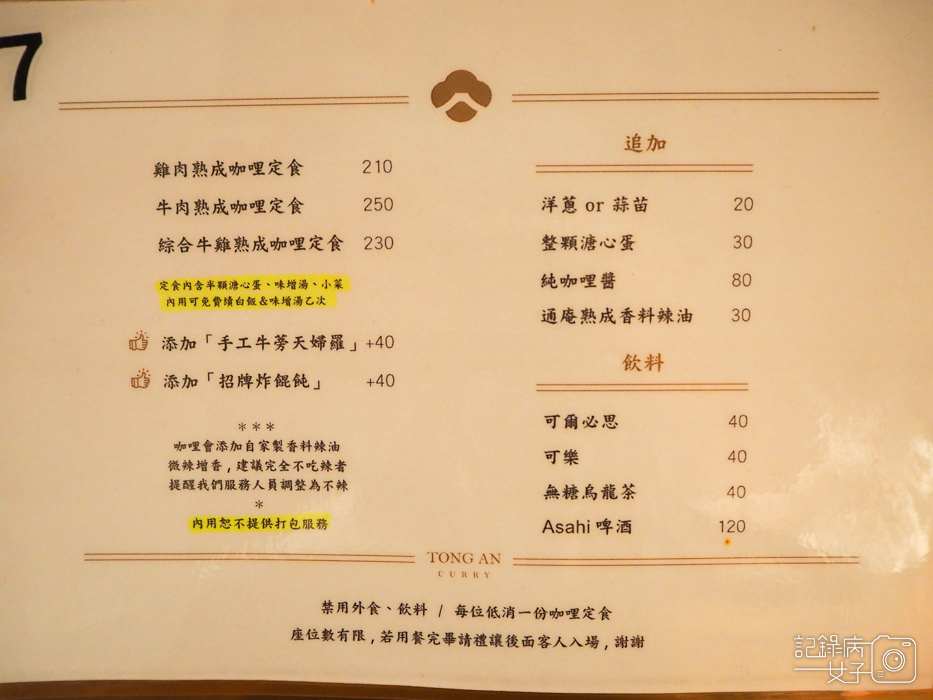 7
雞肉熟成咖哩定食 210
牛肉熟成咖哩定食 250
綜合牛雞熟成咖哩定食 230
定食內含半顆溏心蛋、味增湯、小菜
內用可免費續白飯&味增湯乙次
添加「手工牛蒡天婦羅」+40
添加「招牌炸餛飩」 +40
***
咖哩會添加自家製香料辣油
微辣增香,建議完全不吃辣者
提醒我們服務人員調整為不辣
*
內用恕不提供打包服務
追加
洋蔥 or 蒜苗 20
整顆溏心蛋 30
純咖哩醬 80
通庵熟成香料辣油 30
飲料
可爾必思 40
可樂 40
無糖烏龍茶 40
Asahi 啤酒 120
TONG AN
CURRY
禁用外食、飲料 / 每位低消一份咖哩定食
座位數有限,若用餐完畢請禮讓後面客人入場,謝謝
記錄病
女子